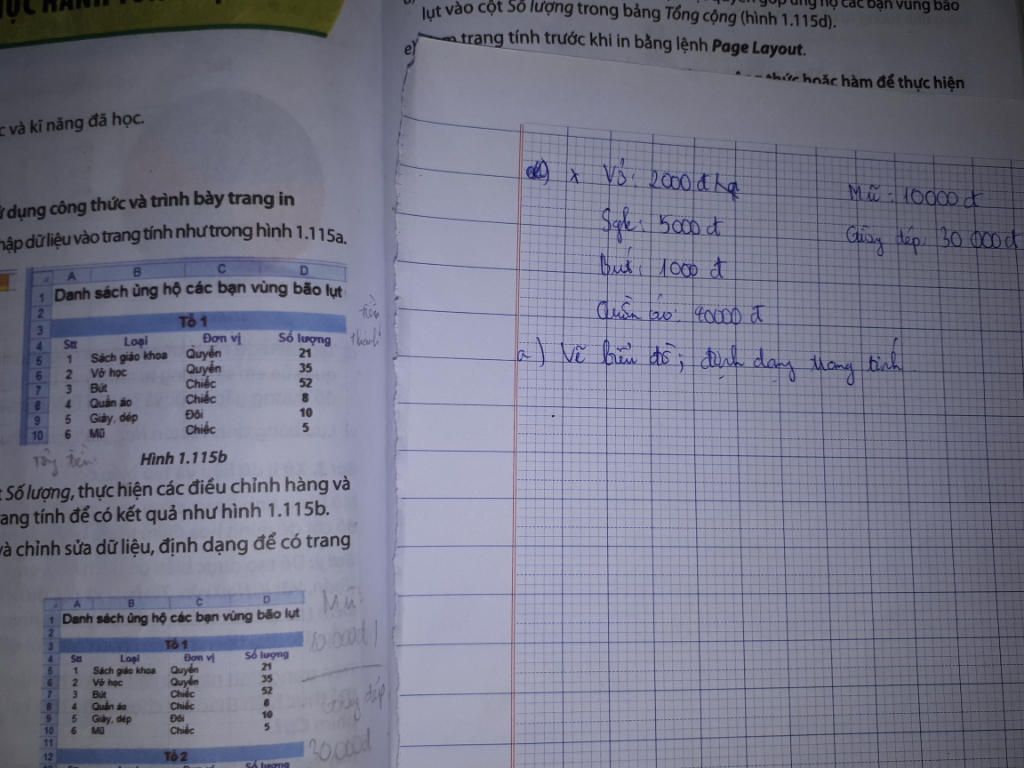 lụt vào cột Số lượng trong bảng Tổng cộng (hình 1.115d).
e)
trang tính trước khi in bằng lệnh Page Layout.
hoặc hàm để thực hiện
c và kĩ năng đã học.
dụng công thức và trình bày trang in
hập dữ liệu vào trang tính như trong hình 1.115a.
A B C D
1 Danh sách ủng hộ các bạn vùng bão lụt
2
3 Tổ 1
4 Stt Loại Đơn vị Số lượng
5 1 Sách giáo khoa Quyển 21
6 2 Vở học Quyển 35
7 3 Bút Chiếc 52
8 4 Quần áo Chiếc 8
9 5 Giày, dép Đôi 10
10 6 Mũ Chiếc 5
tiền
thành
Tổng tiền
Hình 1.115b
Số lượng, thực hiện các điều chỉnh hàng và
rang tính để có kết quả như hình 1.115b.
và chỉnh sửa dữ liệu, định dạng để có trang
A B C D
1 Danh sách ủng hộ các bạn vùng bão lụt
2
3 Tổ 1
4 Stt Loại Đơn vị Số lượng
5 1 Sách giáo khoa Quyển 21
6 2 Vở học Quyển 35
7 3 Bút Chiếc 52
8 4 Quần áo Chiếc 8
9 5 Giày, dép Đôi 10
10 6 Mũ Chiếc 5
11
12 Tổ 2
Số lượng
Mũ
10.000đ
Giày dép
x Vở: 2000đ
Sgk: 5000 đ
Bút: 1000 đ
Quần áo: 40000 đ
Mũ: 10000 đ
Giày dép: 30 000 đ
a) Vẽ biểu đồ; định dạng trang tính